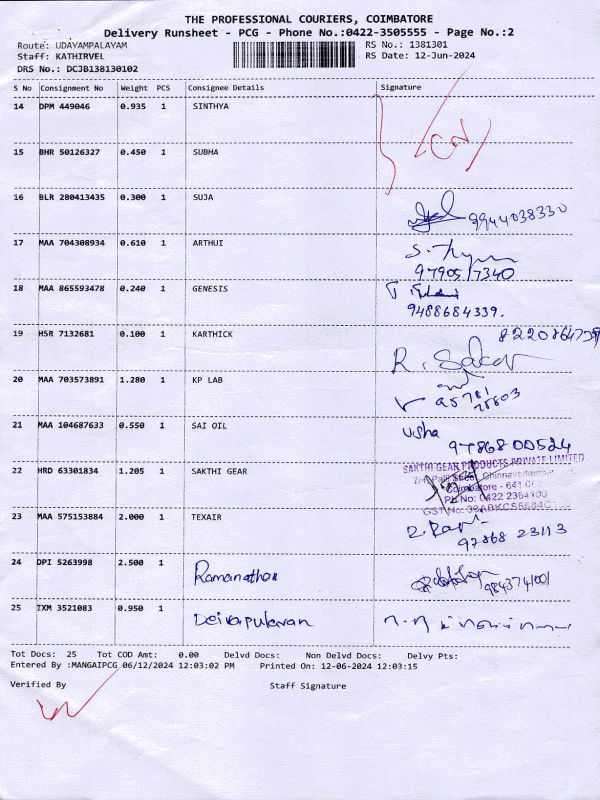 THE PROFESSIONAL COURIERS, COIMBATORE
Delivery Runsheet - PCG - Phone No.:0422-3505555 - Page No.:2
Route: UDAYAMPALAYAM RS No.: 1381301
Staff: KATHIRVEL RS Date: 12-Jun-2024
DRS No.: DCJB138130102
S No Consignment No Weight PCS Consignee Details Signature
14 DPM 449046 0.935 1 SINTHYA
15 BHR 50126327 0.450 1 SUBHA
16 BLR 280413435 0.300 1 SUJA
9944038330
17 MAA 704308934 0.610 1 ARTHUI
9790517340
18 MAA 865593478 0.240 1 GENESIS
9488684339.
19 HSR 7132681 0.100 1 KARTHICK
R.
20 MAA 703573891 1.280 1 KP LAB
21 MAA 104687633 0.550 1 SAI OIL Usha
9786800524
22 HRD 63301834 1.205 1 SAKTHI GEAR SAKTHI GEAR PRODUCTS PRIVATE LIMITED
Coimbatore - 641
Ph No: 0422 2364100
GST No:
23 MAA 575153884 2.000 1 TEXAIR
97868 23113
24 DPI 5263998 2.500 1 Ramanathan
25 IXM 3521083 0.950 1
Tot Docs: 25 Tot COD Amt: 0.00 Delvd Docs: Non Delvd Docs: Delvy Pts:
Entered By :MANGAIPCG 06/12/2024 12:03:02 PM Printed On: 12-06-2024 12:03:15
Verified By Staff Signature